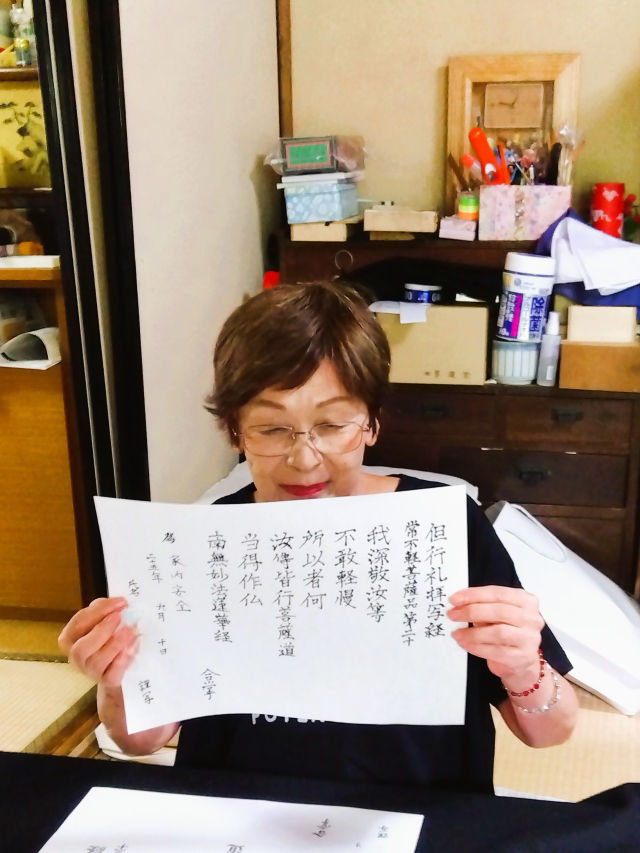 但行礼拝写経
常不軽菩薩品第二十
我深敬汝等
不敢軽慢
所以者何
汝等皆行菩薩道
当得作仏
南無妙法蓮華経 合掌
為 家内安全
二〇二五年 九月 十日
氏名 謹写
除菌